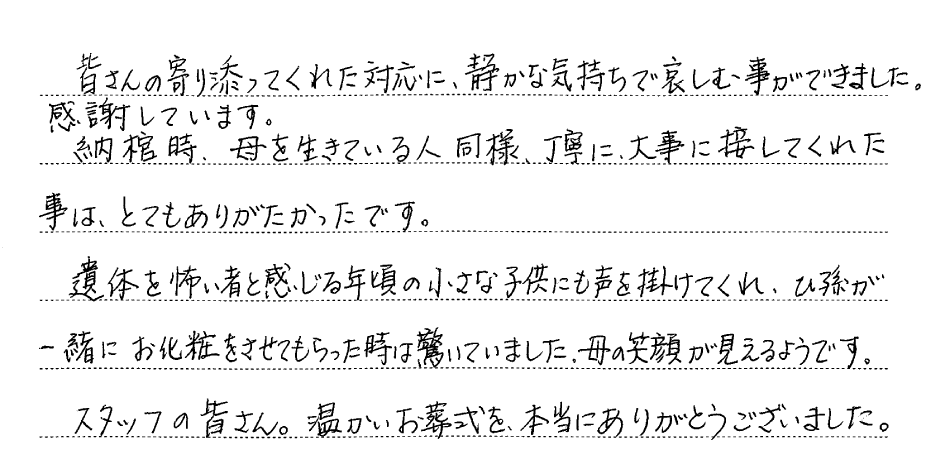 皆さんの寄り添ってくれた対応に、静かな気持ちで哀しむ事ができました。
感謝しています。
納棺時、母を生きている人同様、丁寧に、大事に接してくれた
事は、とてもありがたかったです。
遺体を怖い者と感じる年頃の小さな子供にも声を掛けてくれ、ひ孫が
一緒にお化粧をさせてもらった時は驚いていました、母の笑顔が見えるようです。
スタッフの皆さん。温かいお葬式を、本当にありがとうございました。